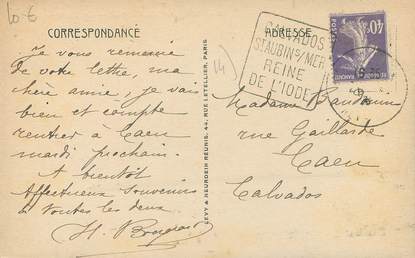 10 €
CORRESPONDANCE
Je vous remercie
de votre lettre, ma
chère amie, je vais
bien et compte
rentrer à Caen
mardi prochain.
A bientôt
Affectueux souvenirs
à toutes les deux
H.
LEVY & NEURDEIN REUNIS, 44, RUE LETELLIER, PARIS
(14)
ADRESSE
CALVADOS
ST AUBIN S/MER
REINE
DE L'IODE
POSTES
40c
Madame
rue Gaillarde
Caen
Calvados